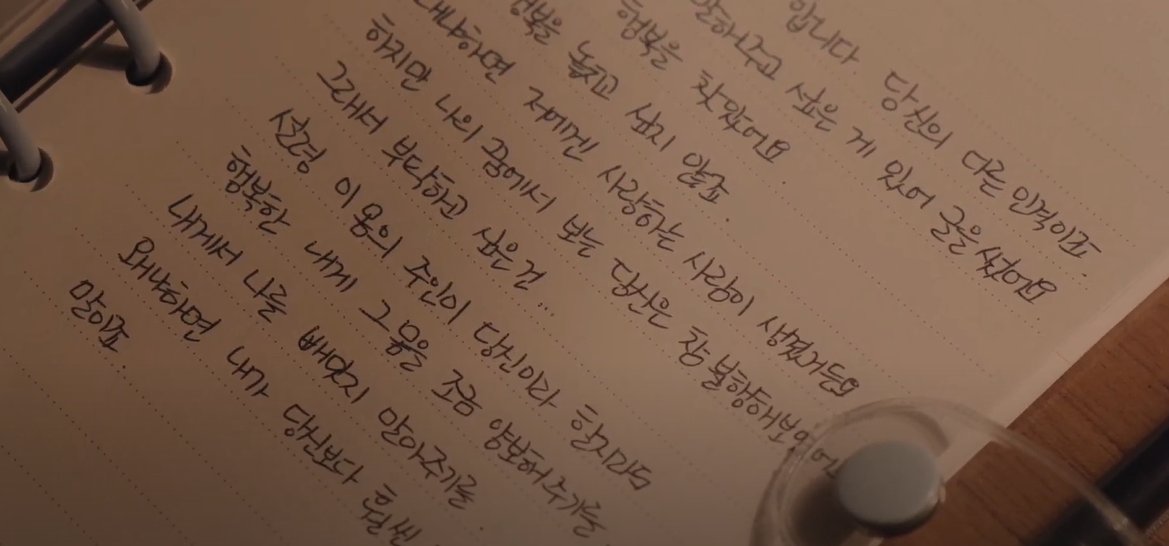 입니다. 당신의 다른 인격이죠.
말해주고 싶은 게 있어 글을 썼어요
행복을 찾았어요
행복을 놓고 싶지 않죠.
왜냐하면 저에겐 사랑하는 사람이 생겼거든요
하지만 나의 꿈에서 보는 당신은 참 불행해보여
그래서 부탁하고 싶은 건 ...
설령 이 몸의 주인이 당신이라 할지라도
행복한 내게 그 몸을 조금 양보해주기를
내게서 나를 빼앗지 말아주기를.
왜냐하면 내가 당신보다 훨씬
말이죠